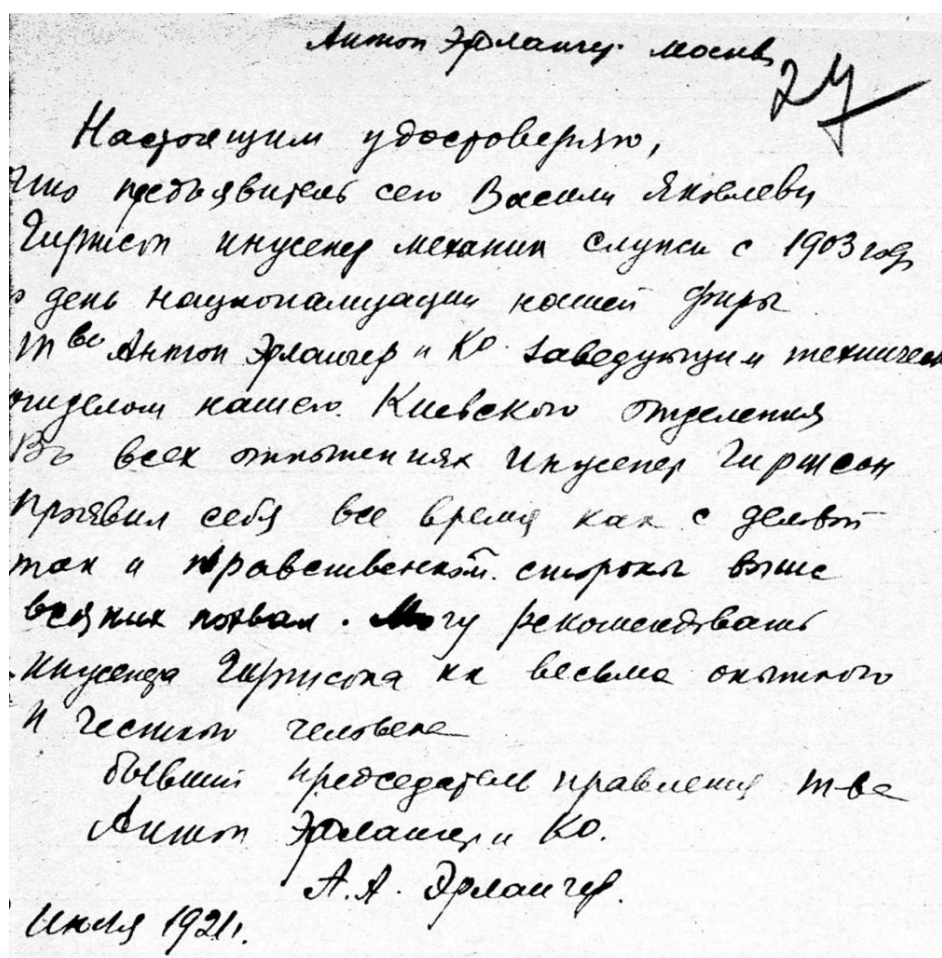 Антон Эрлангер. Москв
24
Настоящим удостоверяю,
что предъявитель сего Васили Яковлеви
Гиршсон инженер механик служи с 1903 году
день национализации нашей фиры
Т во Антон Эрлангер и Ко. заведующим техническ
отделом нашего Киевского отделения
Въ всех отношениях инженер Гиршсон
проявил себя все время как с деловой
так и нравственной стороны выше
всяких похвал. Могу рекомендовать
инженера Гиршсона как весьма опытного
и честного человека
бывший председатель правления т-ва
Антон Эрлангер и Ко.
А. А. Эрлангер.
Июля 1921г.